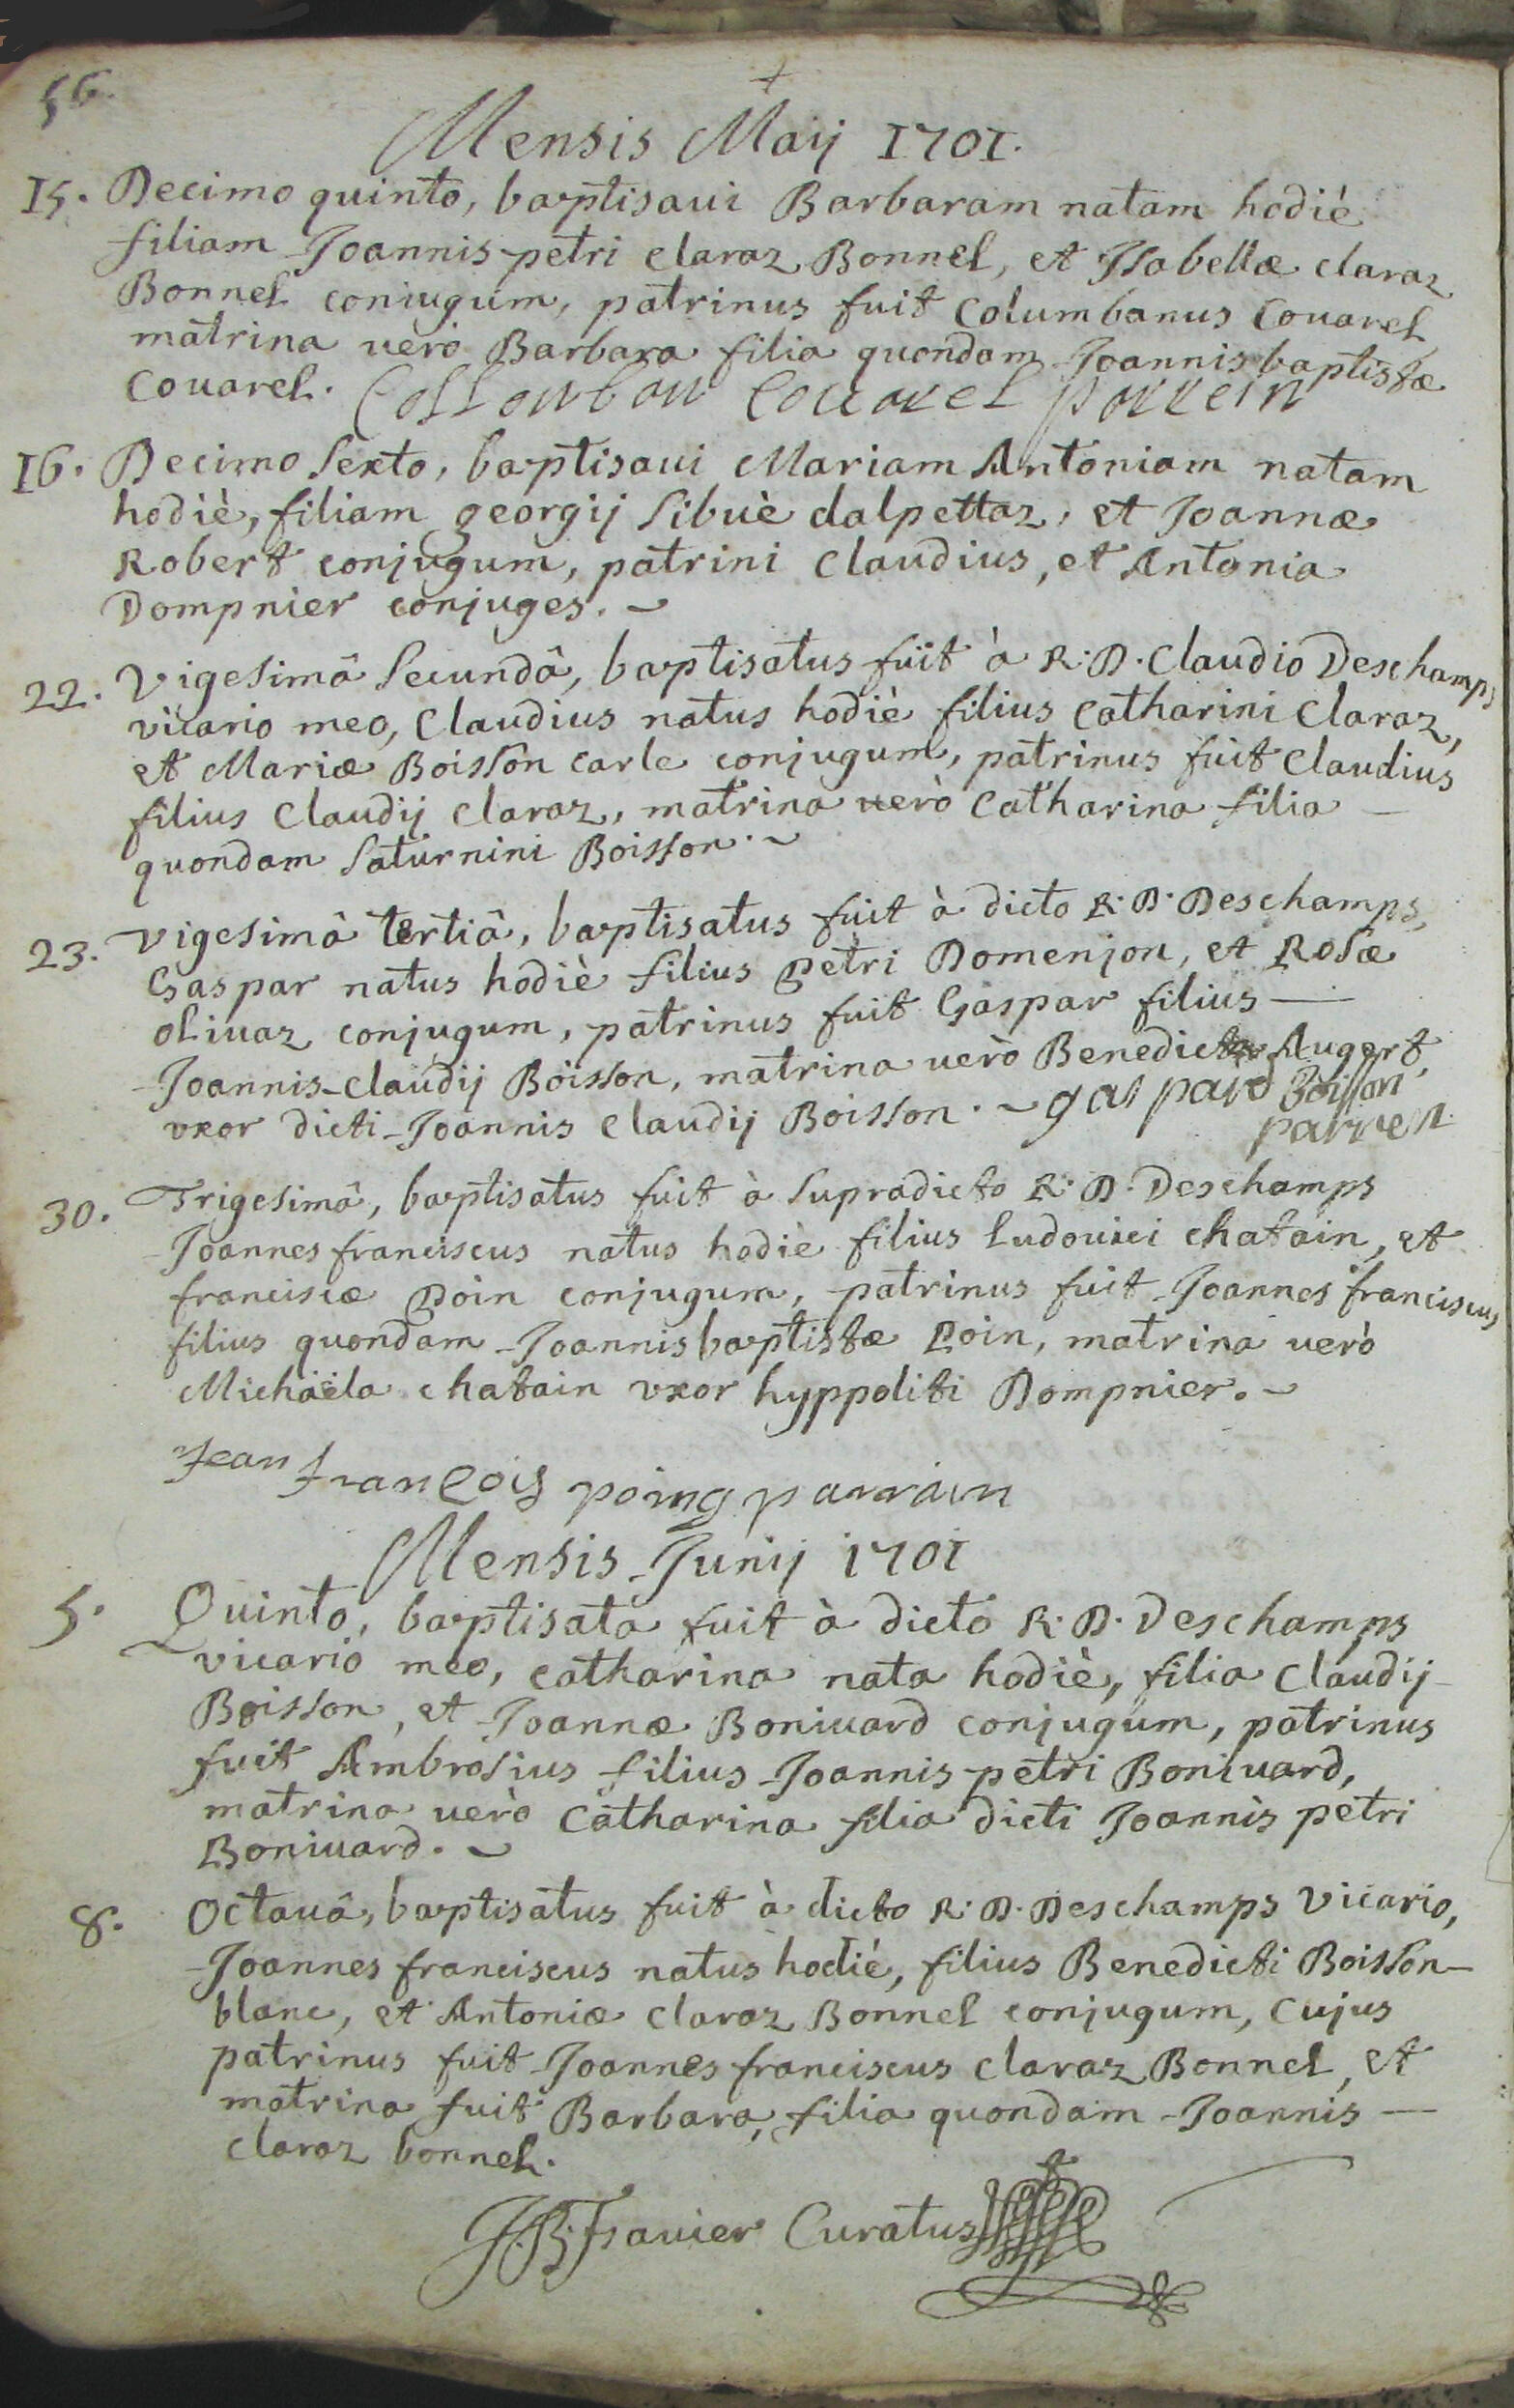 56.
+
Mensis Maij 1701.
15. Decimo quinto, baptisaui Barbaram natam hodiè
filiam Joannis petri claraz Bonnel, et Isabellæ claraz
Bonnel coniugum, patrinus fuit Columbanus Couarel
matrina uerò Barbara filia quondam Joannis baptistæ
Couarel. Collonban Couarel parrein
16. Decimo sexto, baptisaui Mariam Antoniam natam
hodiè, filiam georgij sibuè dalpettaz, et Joannæ
Robert conjugum, patrini Claudius, et Antonia
Dompnier conjuges.
22. Vigesimâ secundâ, baptisatus fuit à R. D. Claudio Deschamps
vicario meo, Claudius natus hodiè filius Catharini Claraz,
et Mariæ Boisson carle conjugum, patrinus fuit Claudius
filius Claudij Claraz, matrina uerò Catharina filia —
quondam Saturnini Boisson.
23. vigesimâ tertiâ, baptisatus fuit à dicto R. D. Deschamps,
Gaspar natus hodiè filius Petri Domenjon, et Rosæ
olivaz conjugum, patrinus fuit Gaspar filius —
Joannis-Claudij Boisson, matrina uerò Benedicta Augert
vxor dicti Joannis Claudij Boisson. gaspard Boisson
parrein
30. Trigesimâ, baptisatus fuit à supradicto R. D. Deschamps
Joannes franciscus natus hodiè filius Ludouici chatain, et
franciscæ Poin conjugum, patrinus fuit Joannes franciscus
filius quondam Joannis baptistæ Poin, matrina uerò
Michaëla chatain vxor hyppoliti Dompnier.
Jean françois poing parrain
Mensis Junij 1701
5. Quinto, baptisata fuit à dicto R. D. Deschamps
vicario meo, catharina nata hodiè, filia Claudij
Boisson, et Joannæ Boniuard conjugum, patrinus
fuit Ambrosius filius Joannis petri Boniuard,
matrina uerò Catharina filia dicti Joannis petri
Boniuard.
8. Octauâ, baptisatus fuit à dicto R. D. Deschamps Vicario,
Joannes franciscus natus hodiè, filius Benedicti Boisson-
blanc, et Antoniæ claraz Bonnel conjugum, cujus
patrinus fuit Joannes franciscus claraz Bonnel, et
matrina fuit Barbara, filia quondam Joannis —
claraz bonnel.
J. B. Frauier Curatus